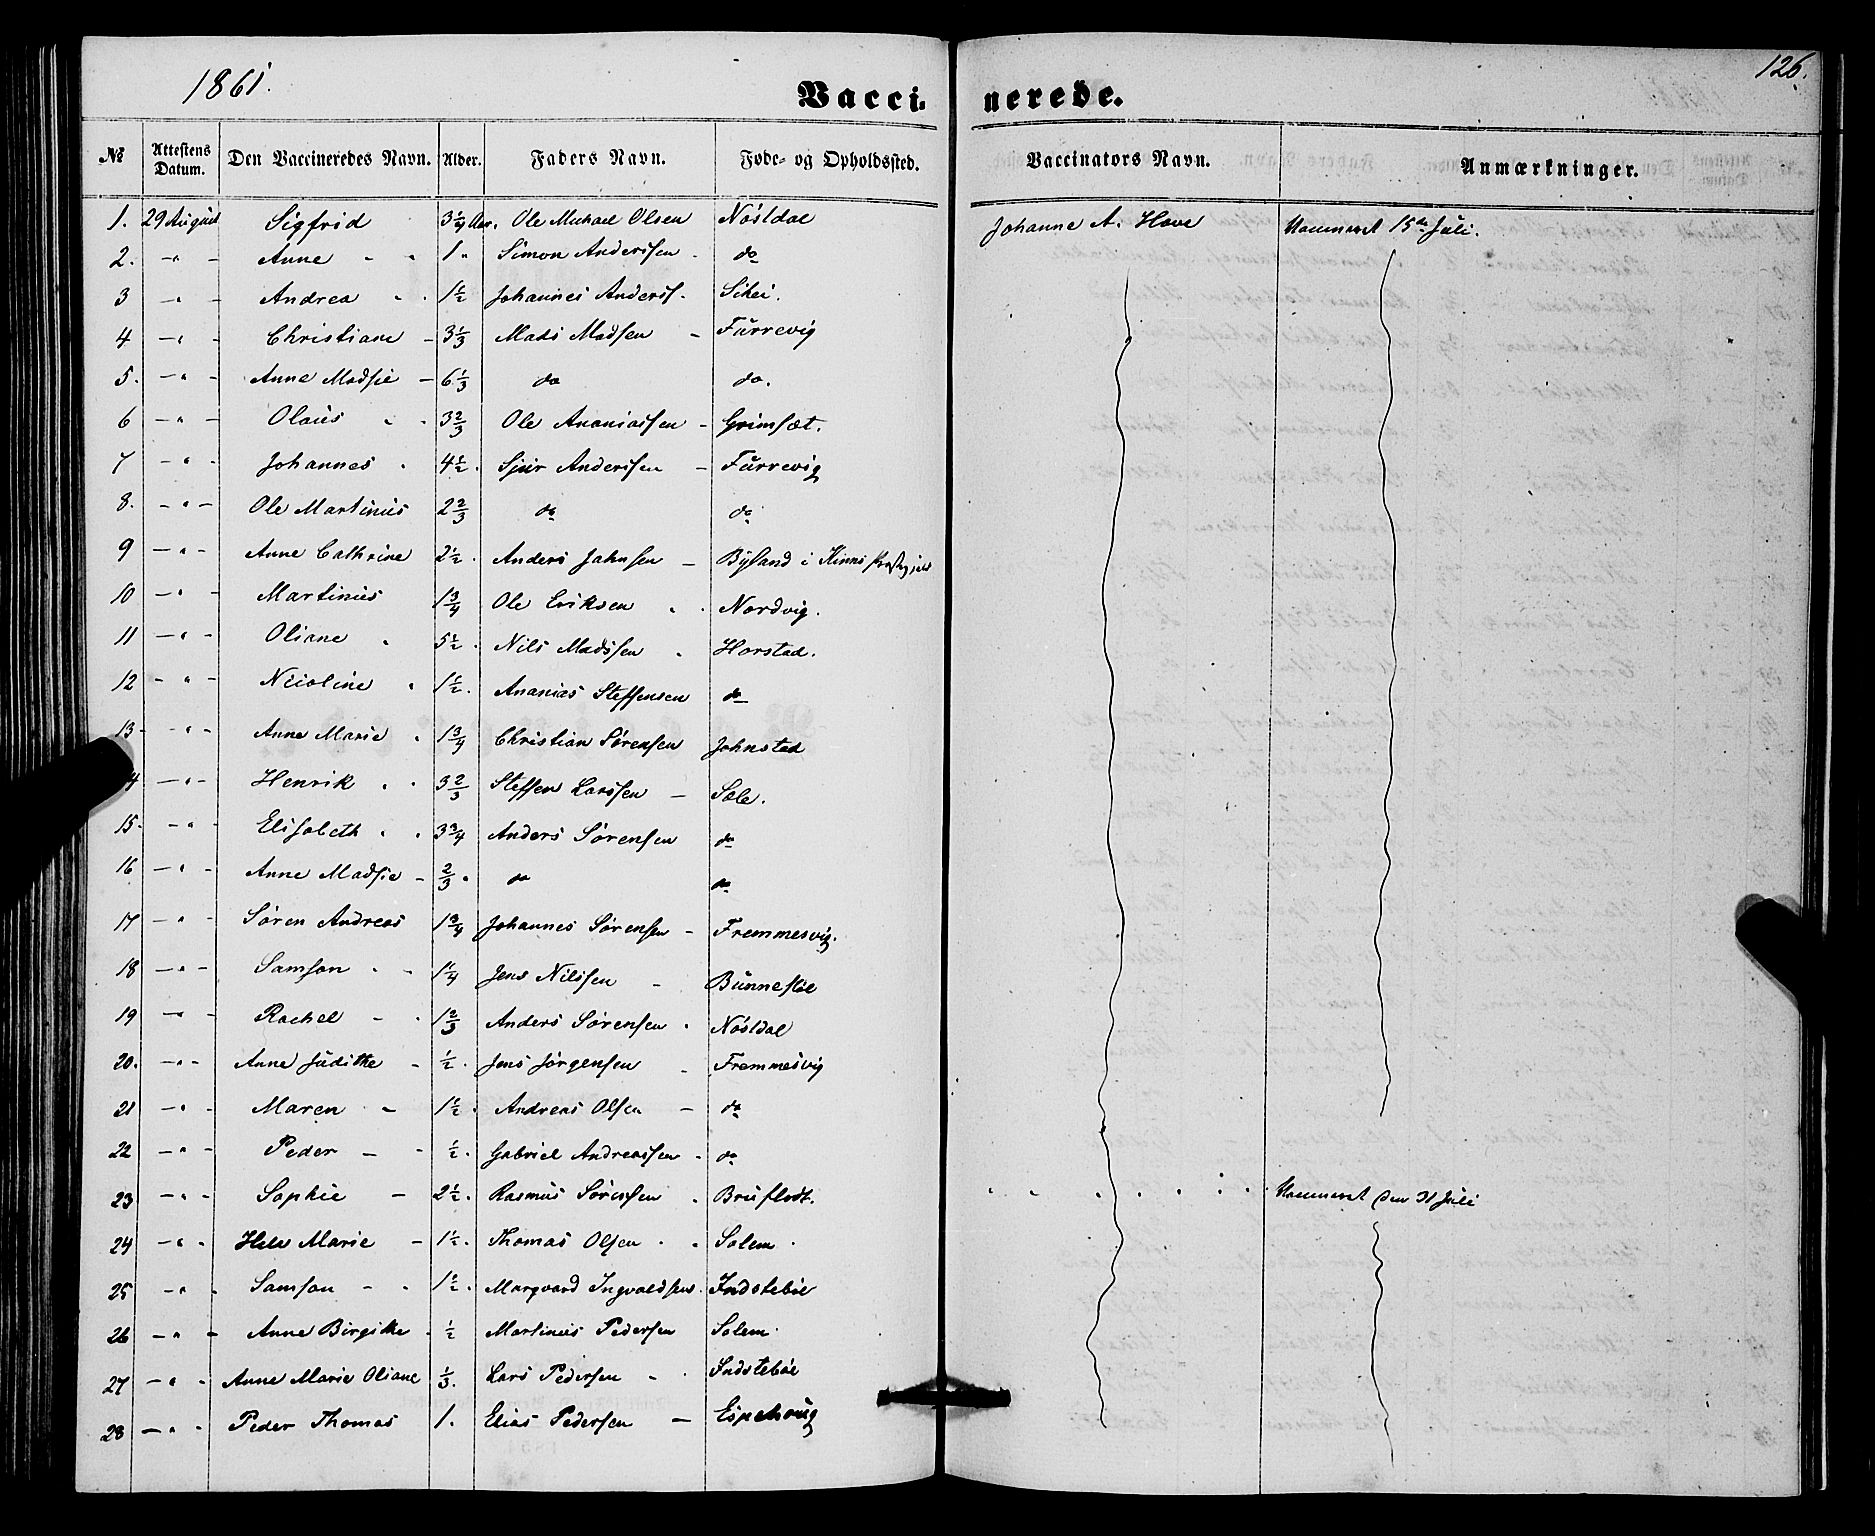 1861.
126.
Vaccinerede.
№ Attestens Datum. Den Vaccineredes Navn. Alder. Faders Navn. Føde- og Opholdssted. Vaccinators Navn. Anmærkninger.
1. 29 August Sigfrid 3 1/4 Aar. Ole Michael Olsen Nösldal Johanne A. Hove 15de Juli.
2. -"- Anne " " 1 " Simon Anderssen do
3 -"- Andrea " " 1 1/2 Johannes Anderss.
4 -"- Christiane - 3 1/3 Mads Madsen - Furrevig
5. -"- Anne Madsie - 6 1/3 do do.
6 -"- Olaus " " 3 2/3 Ole Ananiassen - Grimsæt.
7 -"- Johannes " 4 1/2 . Sjur Anderssen - Furrevig
8. -"- Ole Martinus 2 2/3 do do
9 -"- Anne Cathrine 2 1/2 . Anders Jahnsen - Byland i Kinns
10 -"- Martinus 1 3/4 Ole Eriksen " . Nordvig.
11 -"- Oliane " 5 1/2 . Nils Madssen " Horstad.
12 -"- Nicoline " 1 1/2 . Ananias Steffensen do
13. -"- Anne Marie " 1 3/4 Christian Sørensen Johnstad
4 -"- Henrik " " 3 2/3 Steffen Larssen - Sæle.
15. -"- Elisabeth " " 3 3/4 Anders Sørensen do
16 -"- Anne Madsie - 2/3 " do do
17 -"- Søren Andreas 1 3/4 Johannes Sørensen - Fremmesvig.
18 -"- Samson " - 1 1/4 Jens Nilssen - Bunnesløe
19 -"- Rachel - . 1 2/3 Anders Sørensen " Nösldal
20. -"- Anne Judithe - 1/2 . Jens Jörgensen - Fremmesvig
21 -"- Maren - 1 1/2 . Andreas Olsen - do
22 -"- Peder - - 1/2 . Gabriel Andreassen . do
23 -"- Sophie - 2 1/2 . Rasmus Sørensen . Bruflodt. " " " " " " " den 31 Juli
24 -"- Marie - 1 1/2 . Thomas Olsen " . Solem .
25 -"- Samson - " 1 1/2 . Marqvard Ingvaldsens. Indstebøe
26 -"- Anne Birgitte . 1/2 Martinus Pedersen Solem
27 -"- Anne Marie Oliane 1/3 . Lars Pedersen " . Indstebøe
28 -"- Peder Thomas 1. Elias Pedersen - Espehoug